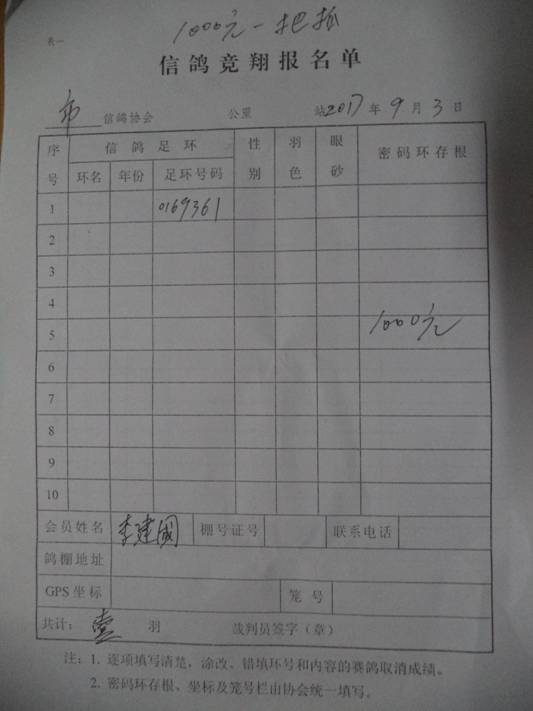 1000元一把抓
表一
信鸽竞翔报名单
市信鸽协会 公里 站2017年9月3日
序号 信鸽足环 性别 羽色 眼砂 密码环存根
环名 年份 足环号码
1 0169361
2
3
4
5 1000元
6
7
8
9
10
会员姓名 李建国 棚号证号 联系电话
鸽棚地址
GPS坐标 笼号
共计：壹羽 裁判员签字（章）
注：1. 逐项填写清楚，涂改、错填环号和内容的赛鸽取消成绩。
2. 密码环存根、坐标及笼号栏由协会统一填写。